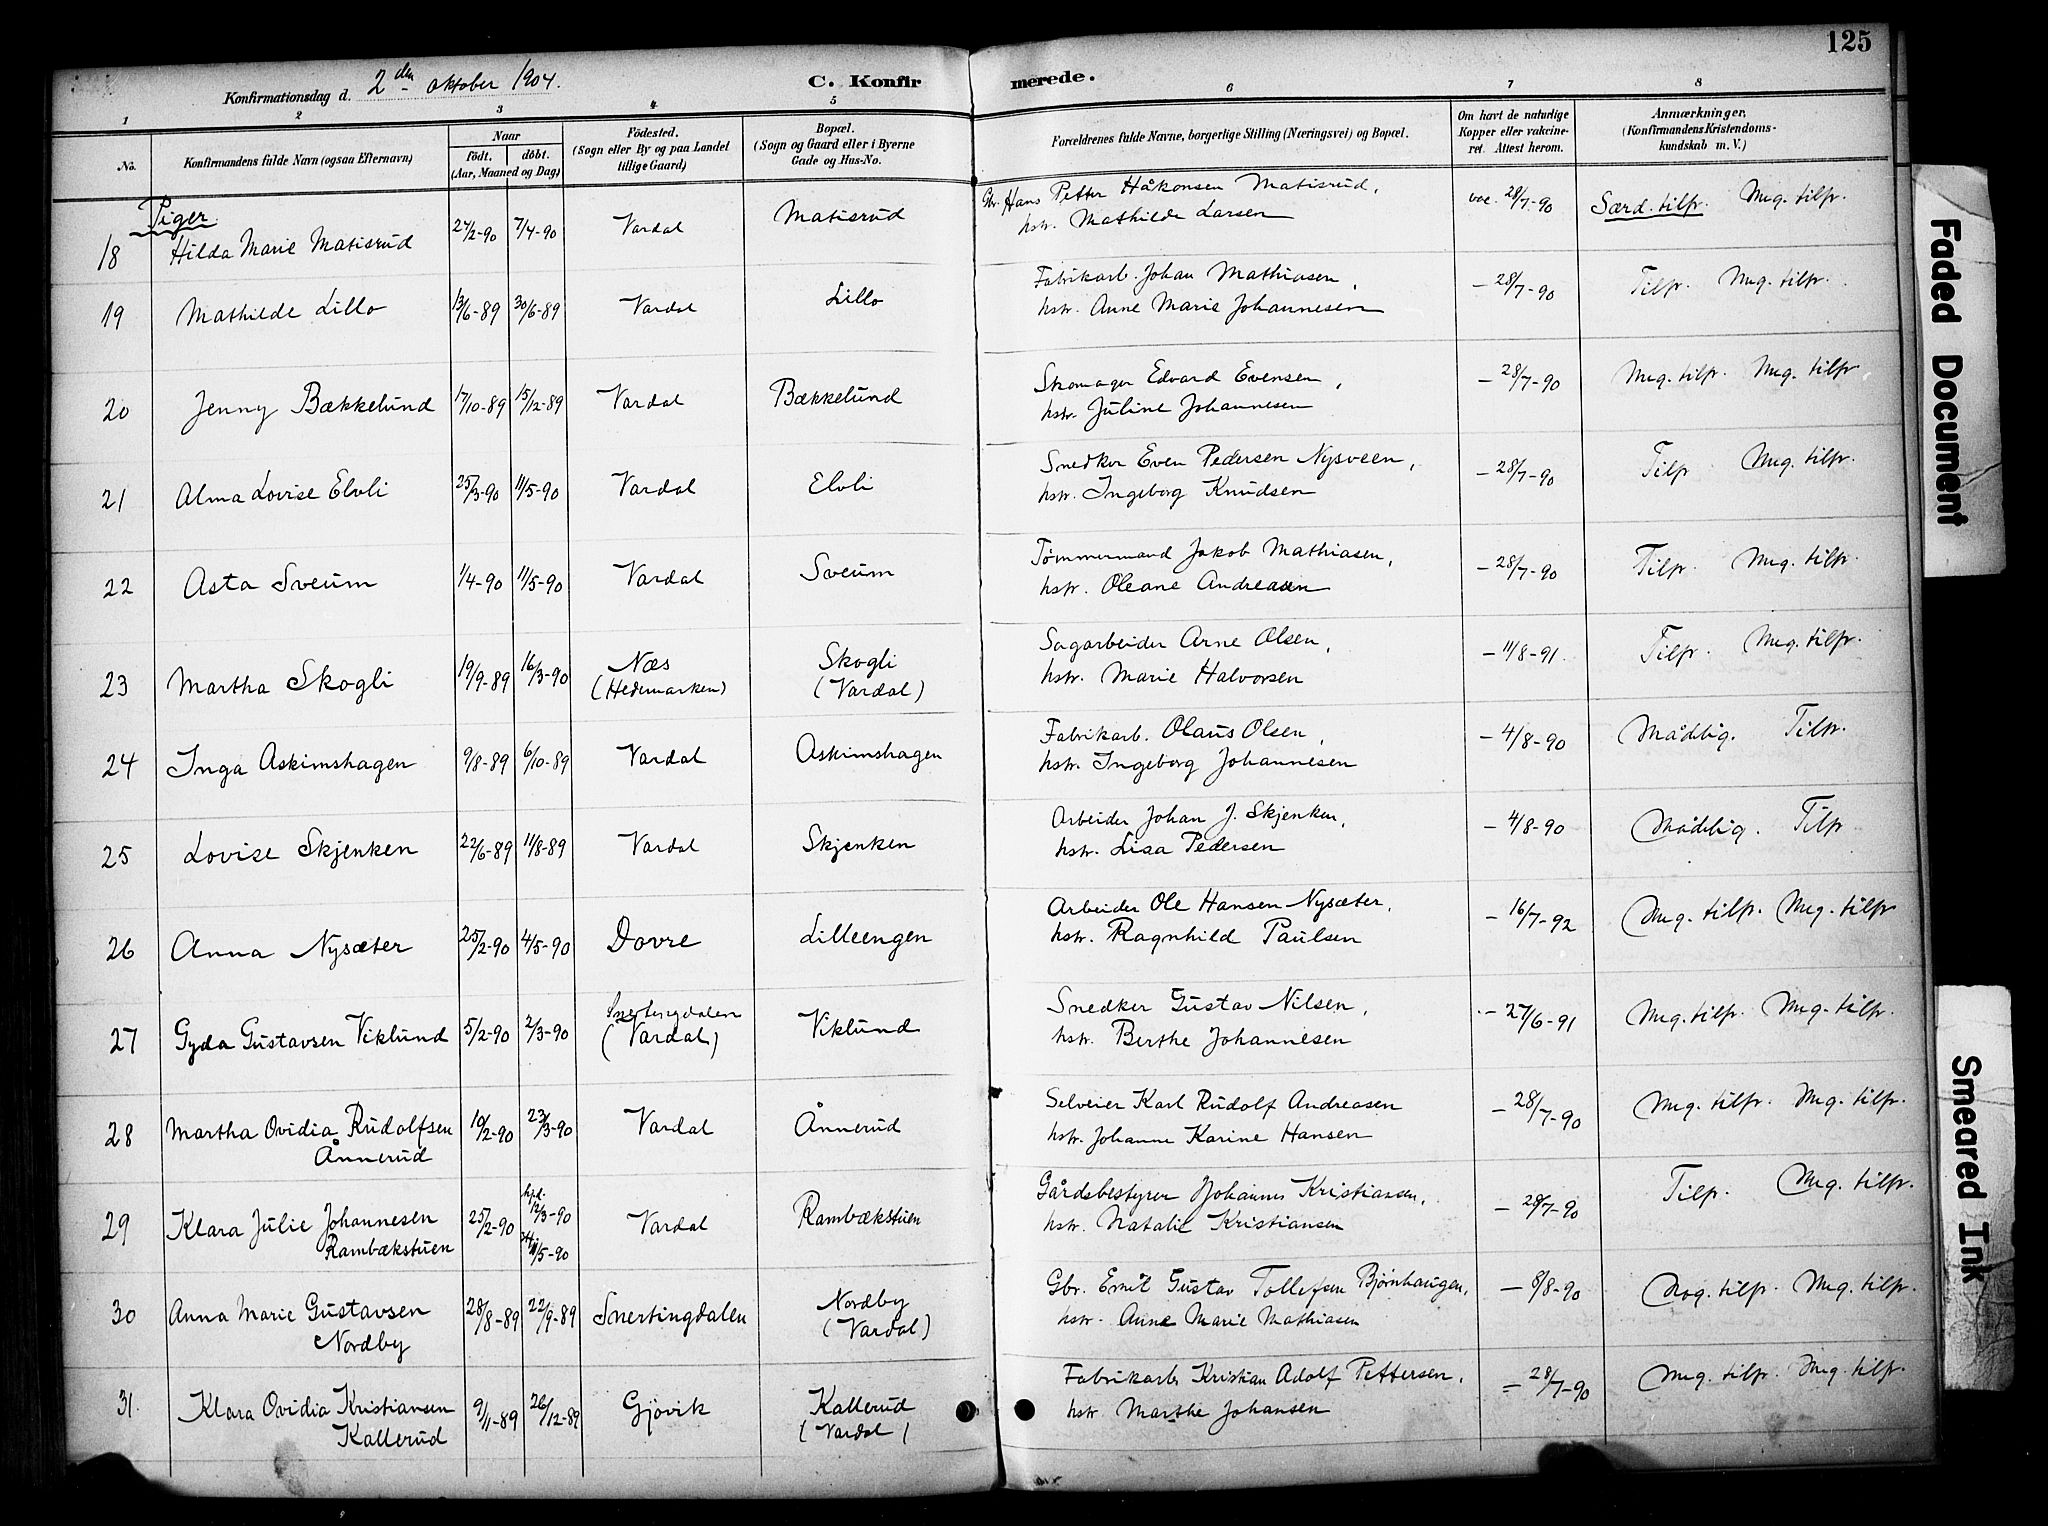 125
Konfirmationsdag d. 2den oktober 1904.
C. Konfirmerede.
1 2 3 4 5 6 7 8
No.
Konfirmandens fulde Navn (ogsaa Efternavn)
Naar
födt. döbt.
(Aar, Maaned og Dag)
Födested.
(Sogn eller By og paa Landet
tillige Gaard)
Bopæl.
(Sogn og Gaard eller i Byerne
Gade og Hus-No.
Forældrenes fulde Navne, borgerlige Stilling (Næringsvei) og Bopæl.
Om havt de naturlige
Kopper eller vakcine-
ret. Attest herom.
Anmærkninger.
(Konfirmandens Kristendoms-
kundskab m. V.)
Piger
18 Hilda Marie Matisrud 24/2-90 7/4-90 Vardal Matisrud Gbr. Hans Petter Håkonsen Matisrud, vac. 28/7-90 Særd. tilfr. Meg. tilfr.
hstr. Mathilde Larsen
19 Mathilde Lillo 13/6-89 30/6-89 Vardal Lillo Fabrikarb. Johan Mathiasen, – 28/7-90 Tilfr. Meg. tilfr.
hstr. Anne Marie Johannesen
20 Jenny Bækkelund 17/10-89 15/12-89 Vardal Bækkelund Skomager Edvard Evensen, – 28/7-90 Meg. tilfr. Meg. tilfr
hstr. Juline Johannesen
21 Alma Lovise Elvli 25/3-90 11/5-90 Vardal Elvli Snedker Even Pedersen Nysveen, – 28/7-90 Tilfr Meg. tilfr.
hstr. Ingeborg Knudsen
22 Asta Sveum 1/4-90 11/5-90 Vardal Sveum Tømmermand Jakob Mathiasen, – 28/7-90 Tilfr. Meg. tilfr.
hstr. Oleane Andreasen
23 Martha Skogli 19/9-89 16/3-90 Næs (Hedemarken) Skogli (Vardal) Sagarbeider Arne Olsen, – 11/8-91. Tilfr. Meg. tilfr.
hstr. Marie Halvorsen
24 Inga Askimshagen 9/8-89 6/10-89 Vardal Askimshagen Fabrikarb. Olaus Olsen, – 4/8-90 Mådelig. Tilfr.
hstr. Ingeborg Johannesen
25 Lovise Skjenken 22/6-89 11/8-89 Vardal Skjenken Arbeider Johan J. Skjenken, – 4/8-90 Mådelig. Tilfr
hstr. Lisa Pedersen
26 Anna Nysæter 25/2-90 4/5-90 Dovre Lilleengen Arbeider Ole Hansen Nysæter, – 16/7-92 Meg. tilfr. Meg. tilfr
hstr. Ragnhild Paulsen
27 Gyda Gustavsen Viklund 5/2-90 2/3-90 Snertingdalen (Vardal) Viklund Snedker Gustav Nilsen, – 27/6-91 Meg. tilfr. Meg. tilfr.
hstr. Berthe Johannesen
28 Martha Ovidia Rudolfsen Ånnerud 10/2-90 23/3-90 Vardal Ånnerud Selveier Karl Rudolf Andreasen – 28/7-90 Meg. tilfr. Meg. tilfr.
hstr. Johanne Karine Hansen
29 Klara Julie Johannesen Rambækstuen 25/2-90 hpd. 12/3-90 11/5-90 Vardal Rambækstuen Gårdsbestyrer Johannes Kristiansen, – 28/7-90 Tilfr. Meg. tilfr.
hstr. Natalie Kristiansen
30 Anna Marie Gustavsen Nordby 28/8-89 22/9-89 Snertingdalen Nordby (Vardal) Gbr. Emil Gustav Tollefsen Bjørnhaugen, – 8/8-90 Nog. tilfr. Meg. tilfr.
hstr. Anne Marie Mathiasen
31. Klara Ovidia Kristiansen Kallerud 9/11-89 26/12-89 Gjövik Kallerud (Vardal) Fabrikarb. Kristian Adolf Pettersen, – 28/7-90 Meg. tilfr. Meg. tilfr.
hstr. Marthe Johansen
Faded Document
Smeared Ink